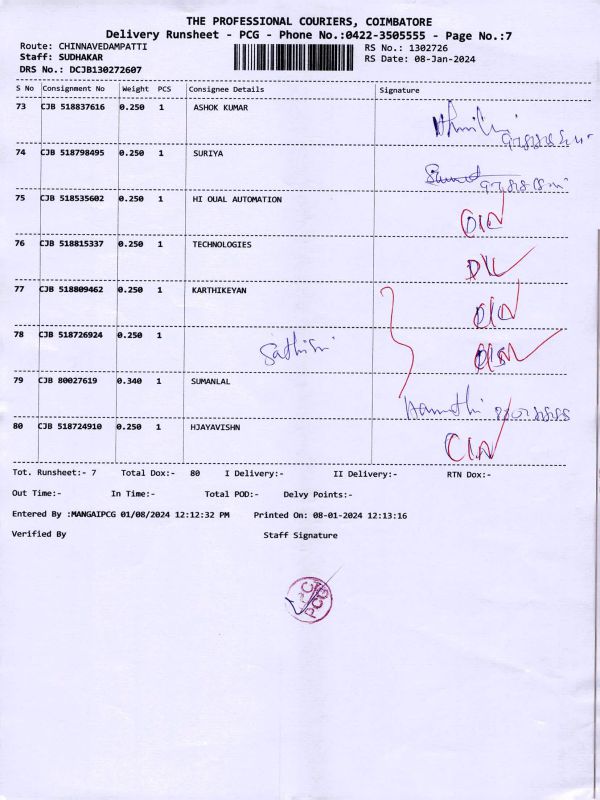 THE PROFESSIONAL COURIERS, COIMBATORE
Delivery Runsheet - PCG - Phone No.:0422-3505555 - Page No.:7
Route: CHINNAVEDAMPATTI RS No.: 1302726
Staff: SUDHAKAR RS Date: 08-Jan-2024
DRS No.: DCJB130272607
S No Consignment No Weight PCS Consignee Details Signature
73 CJB 518837616 0.250 1 ASHOK KUMAR
74 CJB 518798495 0.250 1 SURIYA
75 CJB 518535602 0.250 1 HI OUAL AUTOMATION
76 CJB 518815337 0.250 1 TECHNOLOGIES
77 CJB 518809462 0.250 1 KARTHIKEYAN
78 CJB 518726924 0.250 1
79 CJB 80027619 0.340 1 SUMANLAL
80 CJB 518724910 0.250 1 HJAYAVISHN
Tot. Runsheet:- 7 Total Dox:- 80 I Delivery:- II Delivery:- RTN Dox:-
Out Time:- In Time:- Total POD:- Delvy Points:-
Entered By :MANGAIPCG 01/08/2024 12:12:32 PM Printed On: 08-01-2024 12:13:16
Verified By Staff Signature
PCG